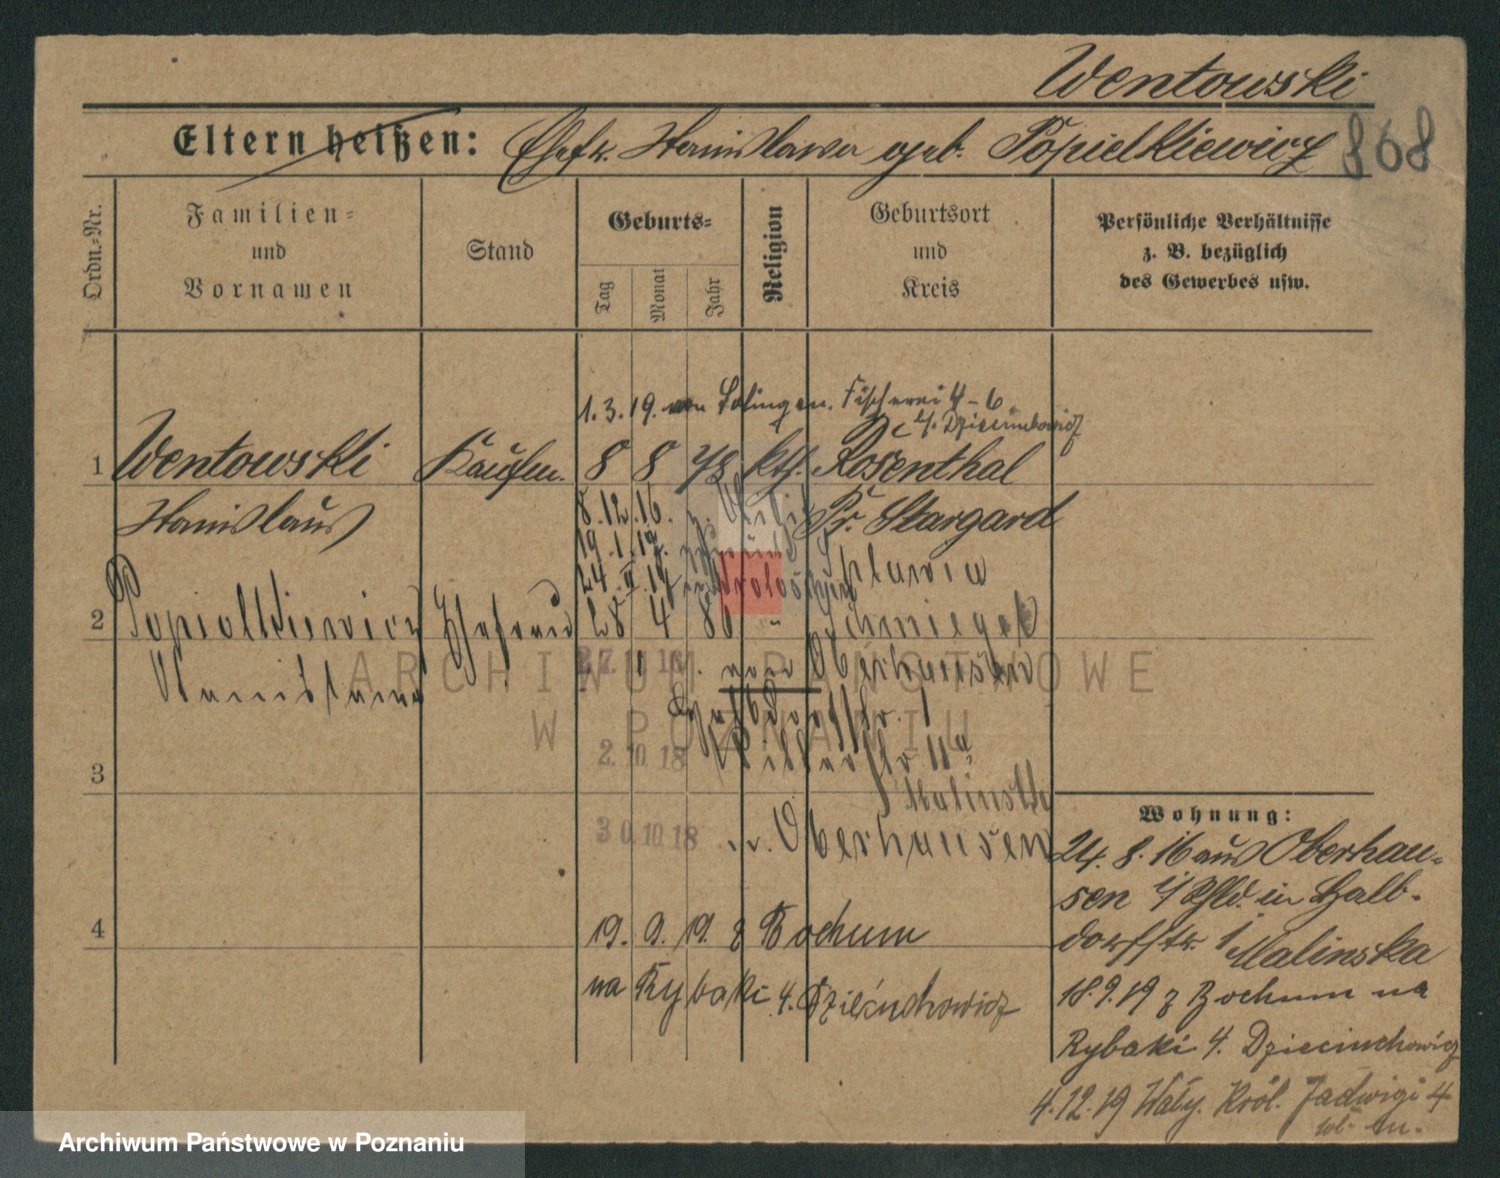 Wentowski
868
Eltern heißen: Ehefr. Stanislawa geb. Popielkiewicz
Ordn.=Nr.
Familien=
und
Vornamen
Stand
Geburts=
Tag
Monat
Jahr
Religion
Geburtsort
und
Kreis
Persönliche Verhältnisse
z. B. bezüglich
des Gewerbes usw.
1.3.19. von Solingen. Fischerei 4-6
b/. Dzieciuchowicz
1 Wentowski Kaufm. 8 8 78 kth. Rosenthal
Stanislaus Pr. Stargard
8.12.16.
19.1.17.
24.II.17
2 Popiolkiewicz Ehefrau 28 4 80 " Schmiegel
Stanislawa
27. 18. von Oberhausen
2.10.18
11a
3
Malinska
30.10.18 n. Oberhausen
4
19. 9. 19. z Bochum
na Rybaki 4. Dzieciuchowicz
Wohnung:
24. 8. 16 aus Oberhau-
sen i/Rhld. in Halb-
dorfstr. 1 Malinska
18.9.19 z Bochum na
Rybaki 4. Dzieciuchowicz
4.12.19 Wały Król. Jadwigi 4
ARCHIWUM PAŃSTWOWE
W POZNANIU
Archiwum Państwowe w Poznaniu